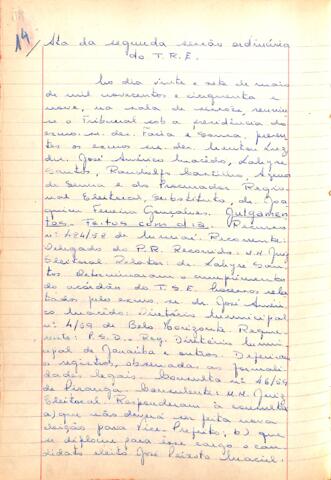 14
Ata da segunda sessão ordinária
do T.R.E.
No dia vinte e sete de maio
de mil novecentos e cinquenta e
nove, na sala de sessões, reuniu-
se o Tribunal sob a presidência do
exmo. sr. des. Faria e Sousa, presen-
tes os exmos srs. des. Luz
drs. José Américo Macêdo, Lahyre
Santos,
de Senna e do Procurador Regio-
nal Eleitoral, Substituto, dr. Joa-
quim Ferreira Gonçalves. Julgamen-
tos - Feitos com dia: Recurso
nº 424/58 de Recorrente:
Delegado do P.R. Recorrido: M.M. Juiz
Eleitoral Relator: dr. Lahyre San-
tos. Determinaram o cumprimento
do acórdão do T.S.E. Processos rela-
tados pelo exmo. sr. dr. José Améri-
co Macêdo: Diretório Municipal
nº 4/59 de Belo Horizonte. Reque-
rente: P.S.D. - Reg. Diretório Muni-
cipal de e outros. Deferiram
o registro, observadas as formali-
dades legais. Consulta nº 46/59
de Piranga. Consulente: M.M. Juiz
Eleitoral. Responderam à consulta
a) que não deverá ser feita nova
eleição para Vice-Prefeito; b) que
se diplome para esse cargo o can-
didato eleito José Peixoto Maciel.